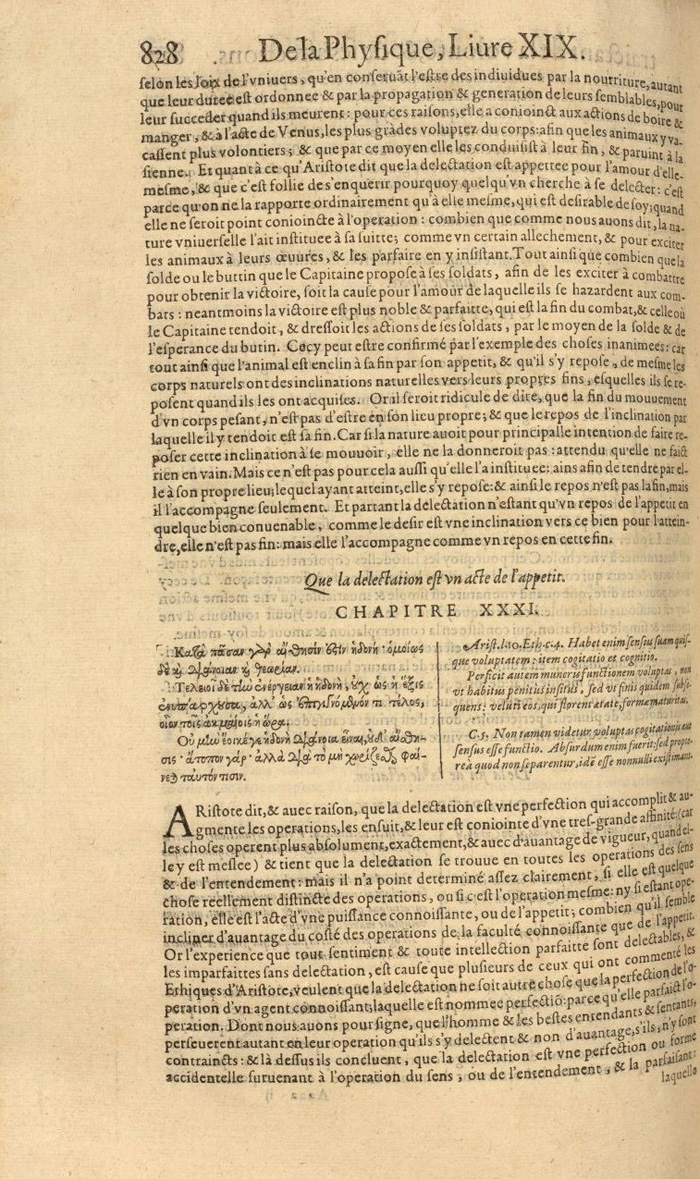 828 De la Physique, Liure XIX.
selon les loix de l'vniuers, qu'en conseruãt l'estre des indiuidues par la nourriture, autant
que leur duree est ordonnee & par la propagation & generation de leurs semblables, pour
leur succeder quand ils meurent: pour ces raisons, elle a conioinct aux actions de boire &
manger, & à l'acte de Venus, les plus grãdes voluptez du corps: afin que les animaux y va-
cassent plus volontiers; & que par ce moyen elle les conduisist à leur fin, & paruint à la
sienne. Et quant à ce qu'Aristote dit que la delectation est appetee pour l'amour d'elle-
mesme, & que c'est follie de s'enquerir pourquoy quelqu'vn cherche à se delecter: c'est
parce qu'on ne la rapporte ordinairement qu'à elle mesme, qui est desirable de soy; quand
elle ne seroit point conioincte à l'operation: combien que comme nous auons dit, la na-
ture vniuerselle l'ait instituee à sa suitte; comme vn certain allechement, & pour exciter
les animaux à leurs œuures, & les parfaire en y insistant. Tout ainsi que combien que la
solde ou le buttin que le Capitaine propose à ses soldats, afin de les exciter à combattre
pour obtenir la victoire, soit la cause pour l'amour de laquelle ils se hazardent aux com-
bats: neantmoins la victoire est plus noble & parfaitte, qui est la fin du combat, & celle où
le Capitaine tendoit, & dressoit les actions de ses soldats, par le moyen de la solde & de
l'esperance du butin. Cecy peut estre confirmé par l'exemple des choses inanimees: car
tout ainsi que l'animal est enclin à sa fin par son appetit, & qu'il s'y repose, de mesme les
corps naturels ont des inclinations naturelles vers leurs propres fins, esquelles ils se re-
posent quand ils les ont acquises. Or il seroit ridicule de dire, que la fin du mouuement
d'vn corps pesant, n'est pas d'estre en son lieu propre; & que le repos de l'inclination par
laquelle il y tendoit est sa fin. Car si la nature auoit pour principalle intention de faire re-
poser cette inclination à se mouuoir, elle ne la donneroit pas: attendu qu'elle ne faict
rien en vain. Mais ce n'est pas pour cela aussi qu'elle l'a instituee: ains afin de tendre par el-
le à son propre lieu; lequel ayant atteint, elle s'y repose: & ainsi le repos n'est pas la fin, mais
il l'accompagne seulement. Et partant la delectation n'estant qu'vn repos de l'appetit en
quelque bien conuenable, comme le desir est vne inclination vers ce bien pour l'attein-
dre, elle n'est pas fin: mais elle l'accompagne comme vn repos en cette fin.
Que la delectation est vn acte de l'appetit.
CHAPITRE XXXI.
Κατὰ πᾶσαν γὰρ αἴσθησίν ἐστιν ἡδονή· ὁμοίως
δὲ καὶ διάνοιαν καὶ θεωρίαν.
Τελειοῖ δὲ τὴν ἐνέργειαν ἡ ἡδονή, οὐχ ὡς ἡ ἕξις
ἐνυπάρχουσα, ἀλλ' ὡς ἐπιγιγνόμενόν τι τέλος,
οἷον τοῖς ἀκμαίοις ἡ ὥρα.
Οὐ μὴν ἔοικέ γε ἡδονὴ διάνοια εἶναι, οὐδ' αἴσθη-
σις· ἄτοπον γάρ· ἀλλὰ διὰ τὸ μὴ χωρίζεσθαι φαί-
νεται ταυτόν τισιν.
Arist. l. 10. Eth. c. 4. Habet enim sensus suam quis-
que voluptatem: item cogitatio et cognitio.
Perficit autem munerus functionem voluptas, non
vt habitus penitus insitus, sed vt finis quidem subse-
quens: velut eos, qui florent ætate, forma maturitas.
C. 5. Non tamen videtur voluptas cogitationis aut
sensus esse functio. Absurdum enim fuerit: sed propte-
rea quod non separentur, idẽ esse nonnulli existimant.
ARistote dit, & auec raison, que la delectation est vne perfection qui accomplit & au-
gmente les operations, les ensuit, & leur est coniointe d'vne tres-grande affinité: (car
les choses operent plus absolument, exactement, & auec d'auantage de vigueur, quand el-
le y est meslee) & tient que la delectation se trouue en toutes les operations des sens
& de l'entendement: mais il n'a point determiné assez clairement, si elle est quelque
chose reellement distincte des operations, ou si c'est l'operation mesme: ny si estant ope-
ration, elle est l'acte d'vne puissance connoissante, ou de l'appetit; combien qu'il semble
incliner d'auantage du costé des operations de la faculté connoissante que de l'appetit.
Or l'experience que tout sentiment & toute intellection parfaitte sont delectables, &
les imparfaittes sans delectation, est cause que plusieurs de ceux qui ont commenté les
Ethiques d'Aristote, veulent que la delectation ne soit autre chose que la perfection de l'o-
peration d'vn agent connoissant; laquelle est nommee perfectiõ: parce qu'elle parfaict l'o-
peration. Dont nous auons pour signe, que l'homme & les bestes entendants & sentants,
perseuerent autant en leur operation qu'ils s'y delectent & non d'auantage, s'ils n'y sont
contraincts: & là dessus ils concluent, que la delectation est vne perfection ou forme
accidentelle suruenant à l'operation du sens, ou de l'entendement, & la parfaisant:
laquelle